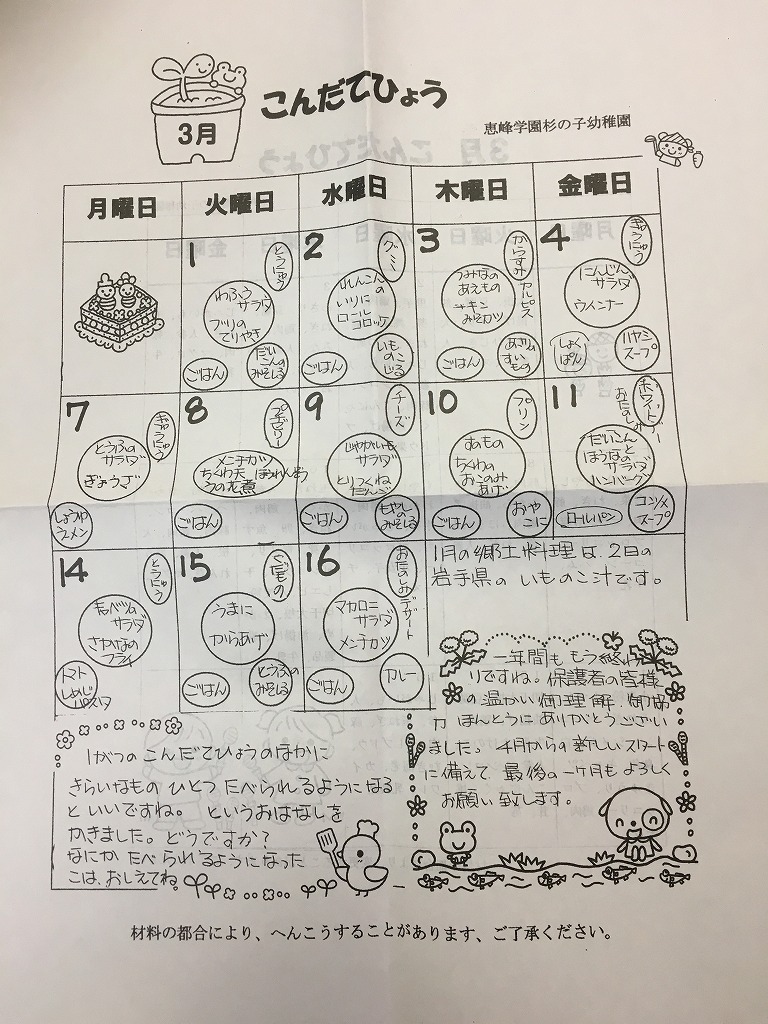 3月
こんだてひょう
恵峰学園杉の子幼稚園
月曜日
火曜日
水曜日
木曜日
金曜日
1
とうにゅう
わふう
サラダ
ブリの
てりやき
ごはん
だい
こんの
みそしる
2
グミ
れんこん
の
いりに
ロール
コロッケ
ごはん
いも
のこ
じる
3
からすみ
カルピス
つみなの
あえもの
チキン
みそカツ
ごはん
あさりの
すい
もの
4
ぎゅうにゅう
にんじん
サラダ
ウインナー
しょく
ぱん
ハヤシ
スープ
7
ぎゅうにゅう
とうふの
サラダ
ぎょうざ
しょうゆ
ラーメン
8
メンチカツ
ちくわ天 ほうれんそう
うの花煮
ごはん
9
チーズ
じゃがいも
サラダ
とりつくね
だんご
ごはん
もやし
のみそしる
10
プリン
すのもの
ちくわの
おこのみ
あげ
ごはん
おや
こに
11
ホワイト
おたのしみデー
だいこん
とほうぼの
サラダ
ハンバーグ
ロールパン
コンソメ
スープ
14
とうにゅう
キャベツの
サラダ
さかなの
フライ
トマト
しめじ
パスタ
15
くだもの
うまに
からあげ
ごはん
とうふの
みそしる
16
おたのしみ
デザート
マカロニ
サラダ
メンチカツ
ごはん
カレー
1月の郷土料理は、2日の
岩手県の いものこ汁です。
一年間も もう終わ
りですね。保護者の皆様
の温かい御理解、御協
力 ほんとうにありがとうござい
ました。4月からの新しいスタート
に備えて 最後の一ヶ月もよろしく
お願い致します。
1がつの こんだてひょうのほかに
きらいなもの ひとつ たべられるようになる
といいですね。 というおはなしを
かきました。どうですか?
なにか たべられるようになった
こは、おしえてね。
材料の都合により、へんこうすることがあります、ご了承ください。